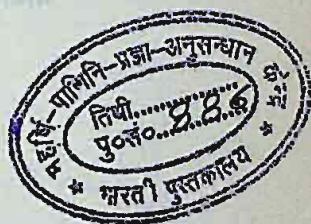 महर्षि-पाणिनि-प्रज्ञा-अनुसन्धान
तिथी..............
पु०सं०..886......
* भारती पुस्तकालय *